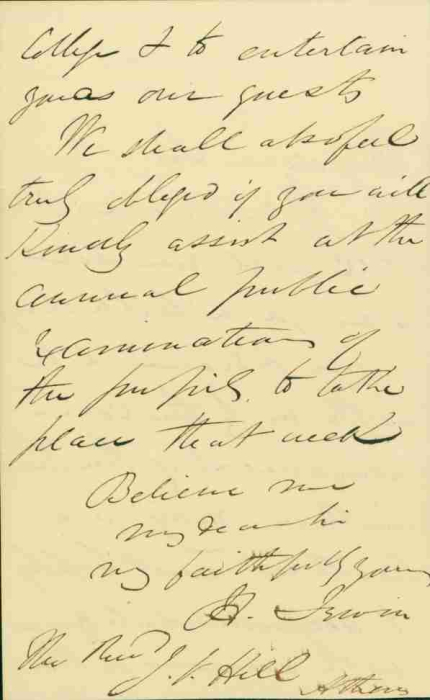 College & to entertain
you as our guests
We shall also feel
truly obliged if you will
kindly assist at the
annual public
Examinations of
the pupils to take
place that week
Believe me
my dear Sir
very faithfully yours
H. Irwin
The Revd J. H. Hill Athens